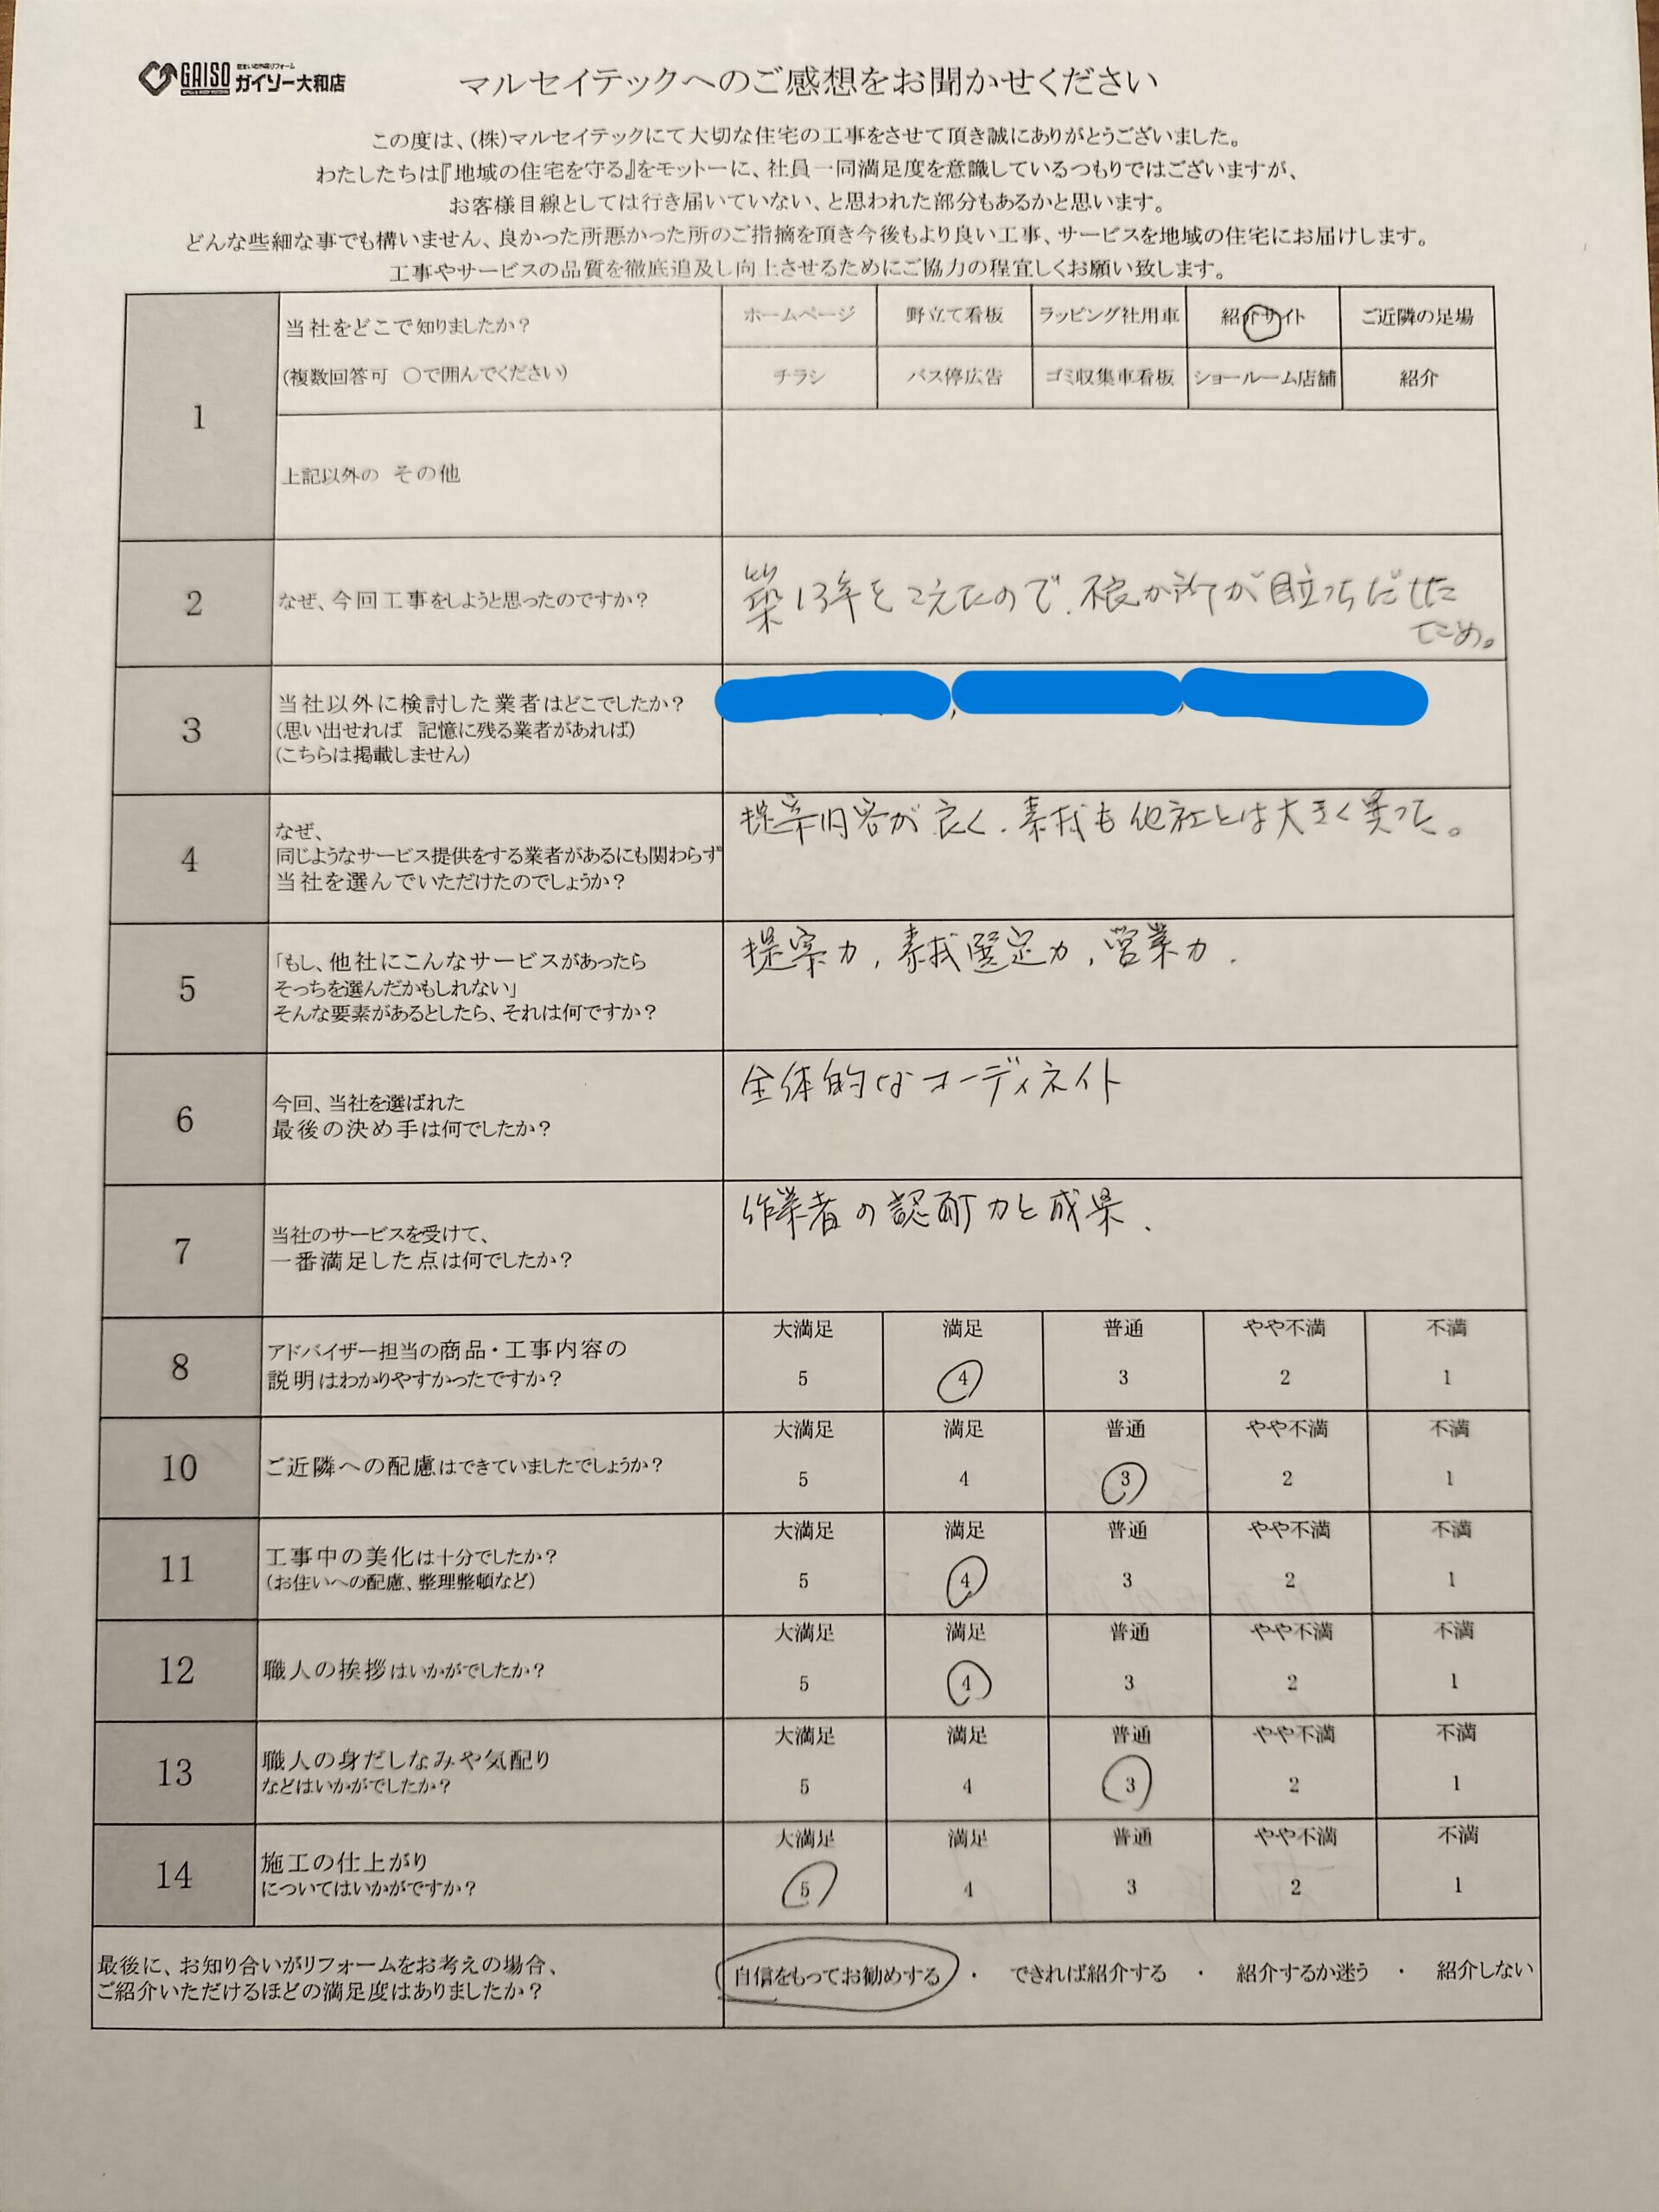 GAISO 住まいの外装リフォーム ガイソー大和店
マルセイテックへのご感想をお聞かせください
この度は、(株)マルセイテックにて大切な住宅の工事をさせて頂き誠にありがとうございました。
わたしたちは『地域の住宅を守る』をモットーに、社員一同満足度を意識しているつもりではございますが、
お客様目線としては行き届いていない、と思われた部分もあるかと思います。
どんな些細な事でも構いません、良かった所悪かった所のご指摘を頂き今後もより良い工事、サービスを地域の住宅にお届けします。
工事やサービスの品質を徹底追及し向上させるためにご協力の程宜しくお願い致します。
1
当社をどこで知りましたか?
(複数回答可 ○で囲んでください)
ホームページ 野立て看板 ラッピング社用車 紹介サイト ご近隣の足場
チラシ バス停広告 ゴミ収集車看板 ショールーム店舗 紹介
上記以外の その他
2
なぜ、今回工事をしようと思ったのですか?
築13年をこえたので、不良か所が目立ちだした
ため。
3
当社以外に検討した業者はどこでしたか?
(思い出せれば 記憶に残る業者があれば)
(こちらは掲載しません)
4
なぜ、
同じようなサービス提供をする業者があるにも関わらず
当社を選んでいただけたのでしょうか?
提案内容が良く、素材も他社とは大きく異った。
5
「もし、他社にこんなサービスがあったら
そっちを選んだかもしれない」
そんな要素があるとしたら、それは何ですか?
提案力、素材選定力、営業力.
6
今回、当社を選ばれた
最後の決め手は何でしたか?
全体的なコーディネイト
7
当社のサービスを受けて、
一番満足した点は何でしたか?
作業者の 力と成果、
8
アドバイザー担当の商品・工事内容の
説明はわかりやすかったですか?
大満足 満足 普通 やや不満 不満
5 4 3 2 1
10
ご近隣への配慮はできていましたでしょうか?
大満足 満足 普通 やや不満 不満
5 4 3 2 1
11
工事中の美化は十分でしたか?
(お住いへの配慮、整理整頓など)
大満足 満足 普通 やや不満 不満
5 4 3 2 1
12
職人の挨拶はいかがでしたか?
大満足 満足 普通 やや不満 不満
5 4 3 2 1
13
職人の身だしなみや気配り
などはいかがでしたか?
大満足 満足 普通 やや不満 不満
5 4 3 2 1
14
施工の仕上がり
についてはいかがですか?
大満足 満足 普通 やや不満 不満
5 4 3 2 1
最後に、お知り合いがリフォームをお考えの場合、
ご紹介いただけるほどの満足度はありましたか?
自信をもってお勧めする ・ できれば紹介する ・ 紹介するか迷う ・ 紹介しない